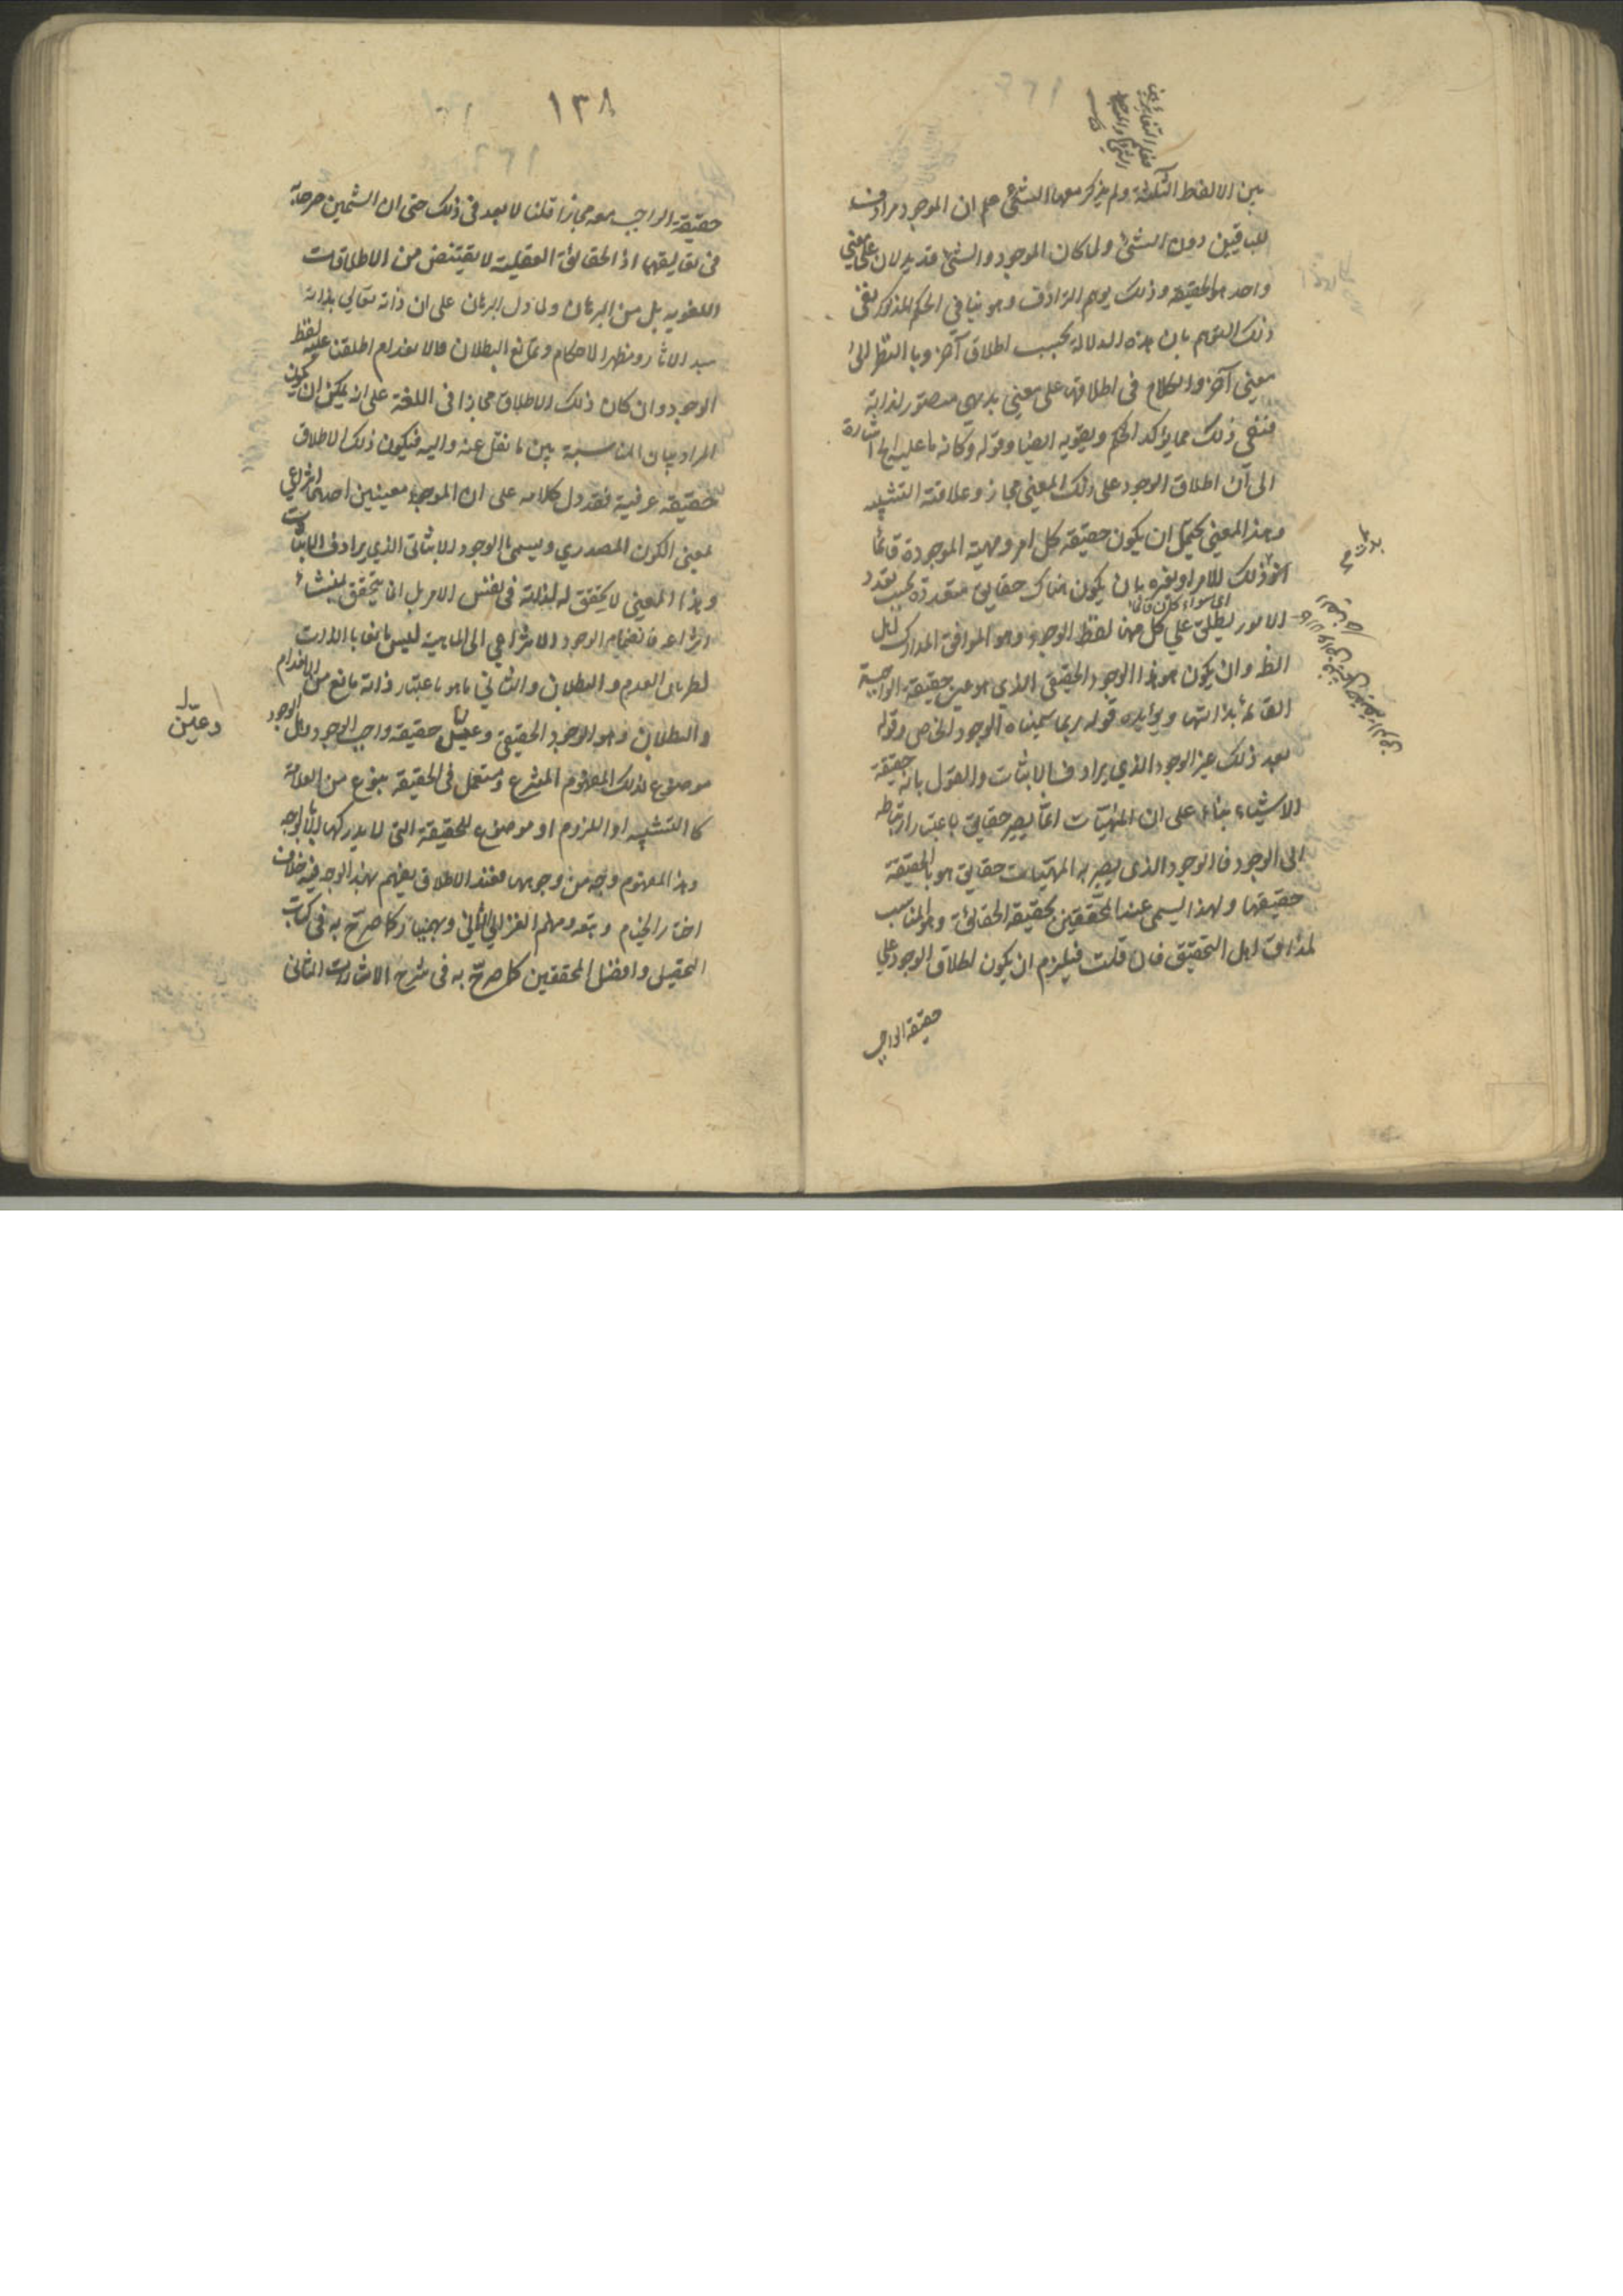 بين الالفظ الثلثة ولم يذكر معها الشئ علم ان الموجود مرادف
للباقين دون الشئ ولما كان الموجود والشئ قد يدلان على معنى
واحد هو الحقيقة وذلك يوهم الترادف وهو ينافي الحكم المذكور نفى
ذلك التوهم بان هذه الدلالة بحسب اطلاق آخر وبالنظر الى
معنى آخر والكلام في اطلاقها على معنى بديهي متصور لذاته
فنفي ذلك مما يؤكد الحكم ويقويه ايضا وقوله وكانه ما عليه الخ اشارة
الى ان اطلاق الوجود على ذلك المعنى مجاز وعلاقته التشبيه
وهذا المعنى يحتمل ان يكون حقيقة كل امر ومهية الموجودة قائما
ذلك للامر او بغيره بان يكون هناك حقايق متعددة بحسب تعدد
اي سواء كان قائما
الامور يطلق على كل منها لفظ الوجود وهو الموافق
الظ وان يكون هو هذا الوجود الحقيقي الذي هو عين حقيقة الواجبية
القائمة بذاتها ويؤيده قوله ربما سميناه الوجود الخاص وقوله
بعد ذلك غير الوجود الذي يرادف الاثبات والقول بانه حقيقة
الاشياء بناء على ان المهيات انما يصير حقايق باعتبار ارتباطه
الى الوجود فالوجود الذي يصير به المهيات حقايق هو بالحقيقة
حقيقتها ولهذا يسمى عند المحققين بحقيقة الحقائق وهو المناسب
لمذاق اهل التحقيق فان قلت فيلزم ان يكون اطلاق الوجود على
حقيقة الواجب
١٣٨
حقيقة الواجب معه مجازا قلنا لا بعد في ذلك حتى ان الشيخين صرحا به
في تعاليقهما اذ الحقائق العقلية لا يقتنص من الاطلاقات
اللغوية بل من البرهان ولما دل البرهان على ان ذاته تعالى بذاته
مبدء الاثار ومظهر الاحكام وممانع البطلان والانعدام اطلقت عليه لفظ
الوجود وان كان ذلك الاطلاق مجازا في اللغة على انه يمكن ان يكون
المراد بيان المناسبة بين ما نقل عنه واليه فيكون ذلك الاطلاق
حقيقة عرفية فقد دل كلامه على ان الموجود معنيين احدهما انتزاعي
بمعنى الكون المصدري ويسمى الوجود الاثباتي الذي يرادف الاثبات
وهذا المعنى لا تحقق له لذاته في نفس الامر بل انما يتحقق بمنشاء
انتزاعه فانضمام الوجود الانتزاعي الى الماهية ليس مانعا بالذات
لطريان العدم والبطلان والثاني ما هو باعتبار ذاته مانع من الانعدام
والبطلان وهو الوجود الحقيقي وعين حقيقة واجب الوجود ولعل الوجود
موضوع لذلك المفهوم المنتزع ومستعمل في الحقيقة بنوع من العلاقة
كالتشبيه او اللزوم او موضوع للحقيقة التي لا يدركها الا بالوجه
وهذا المفهوم وجه من وجوهها فعند الاطلاق يفهم بهذا الوجه فيه خلاف
اختار الخيام وتبعه ومنهم الغزالي الثاني وبهمنيار كما صرح به في كتاب
التحصيل وافضل المحققين كما صرح به في شرح الاشارات الثاني